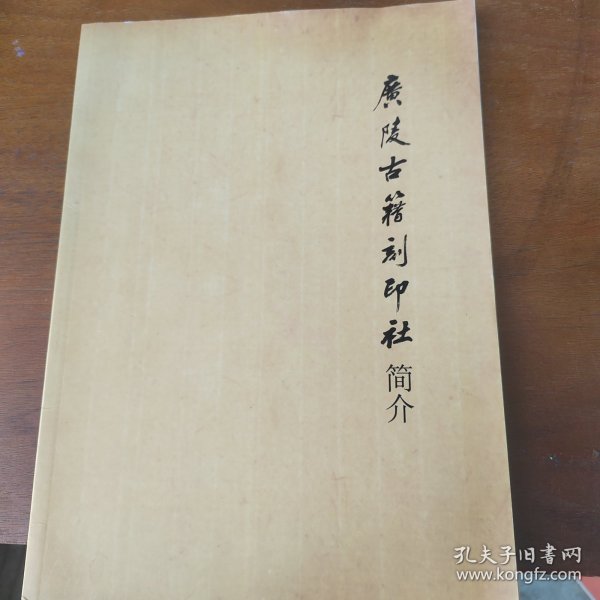 廣陵古籍刻印社简介
孔夫子旧书网
www.kongfz.com